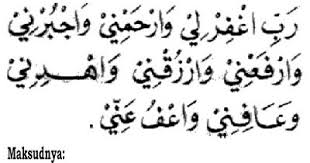 رَبِّ اغْفِرْ لِيْ وَارْحَمْنِيْ وَاجْبُرْنِيْ
وَارْفَعْنِيْ وَارْزُقْنِيْ وَاهْدِنِيْ
وَعَافِنِيْ وَاعْفُ عَنِّيْ.
Maksudnya: